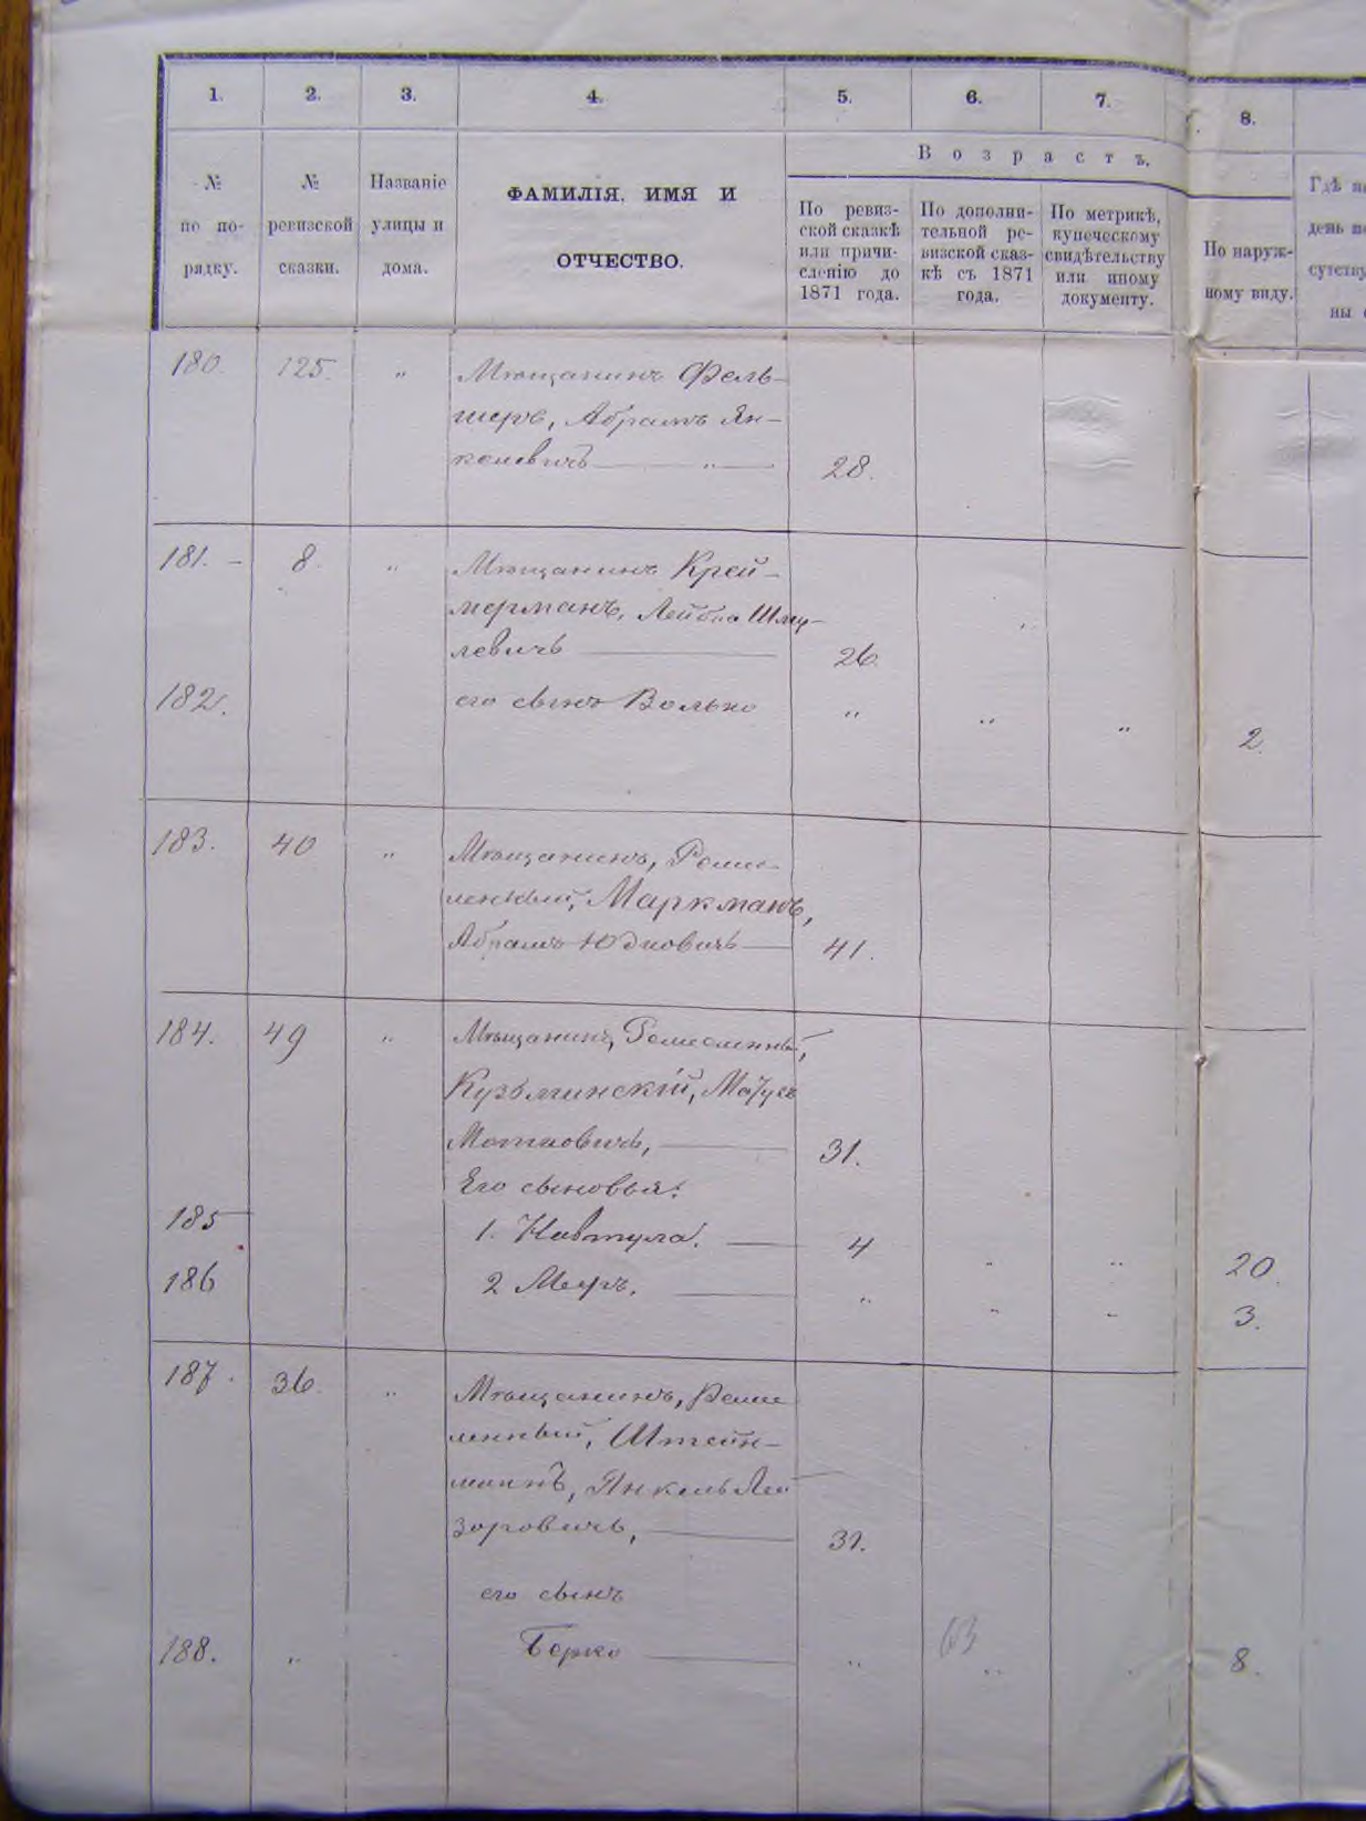 1. 2. 3. 4. 5. 6. 7. 8.
В о з р а с т ъ.
№ по по- рядку.
№ ревизской сказки.
Названіе улицы и дома.
ФАМИЛІЯ, ИМЯ И
ОТЧЕСТВО.
По ревиз-
ской сказкѣ
или причи-
сленію до
1871 года.
По дополни-
тельной ре-
визской сказ-
кѣ съ 1871
года.
По метрикѣ,
купеческому
свидѣтельству
или иному
документу.
По наруж-
ному виду.
Гдѣ
день
сутству
ны
180. 125. " Мѣщанинъ Фель-
шеръ, Абрамъ Ян-
келевичъ " 28.
181. - 8. " Мѣщанинъ Крей-
мерманъ, Лейба Шму-
левичъ 26.
182. его сынъ Волько " " " 2.
183. 40 " Мѣщанинъ, Ремес-
ленный, Маркманъ,
Абрамъ Юдковичъ 41.
184. 49 " Мѣщанинъ, Ремесленный,
Кузьминскій, Матусъ
Мотковичъ, 31.
Его сыновья:
185 1. Навтула. 4 " " 20
186 2 Меръ. " " " 3.
187. 36. " Мѣщанинъ, Ремес
ленный, Штейн-
манъ, Янкель Лей
зоровичъ, 31.
его сынъ
188. " Берко " 63 " 8.